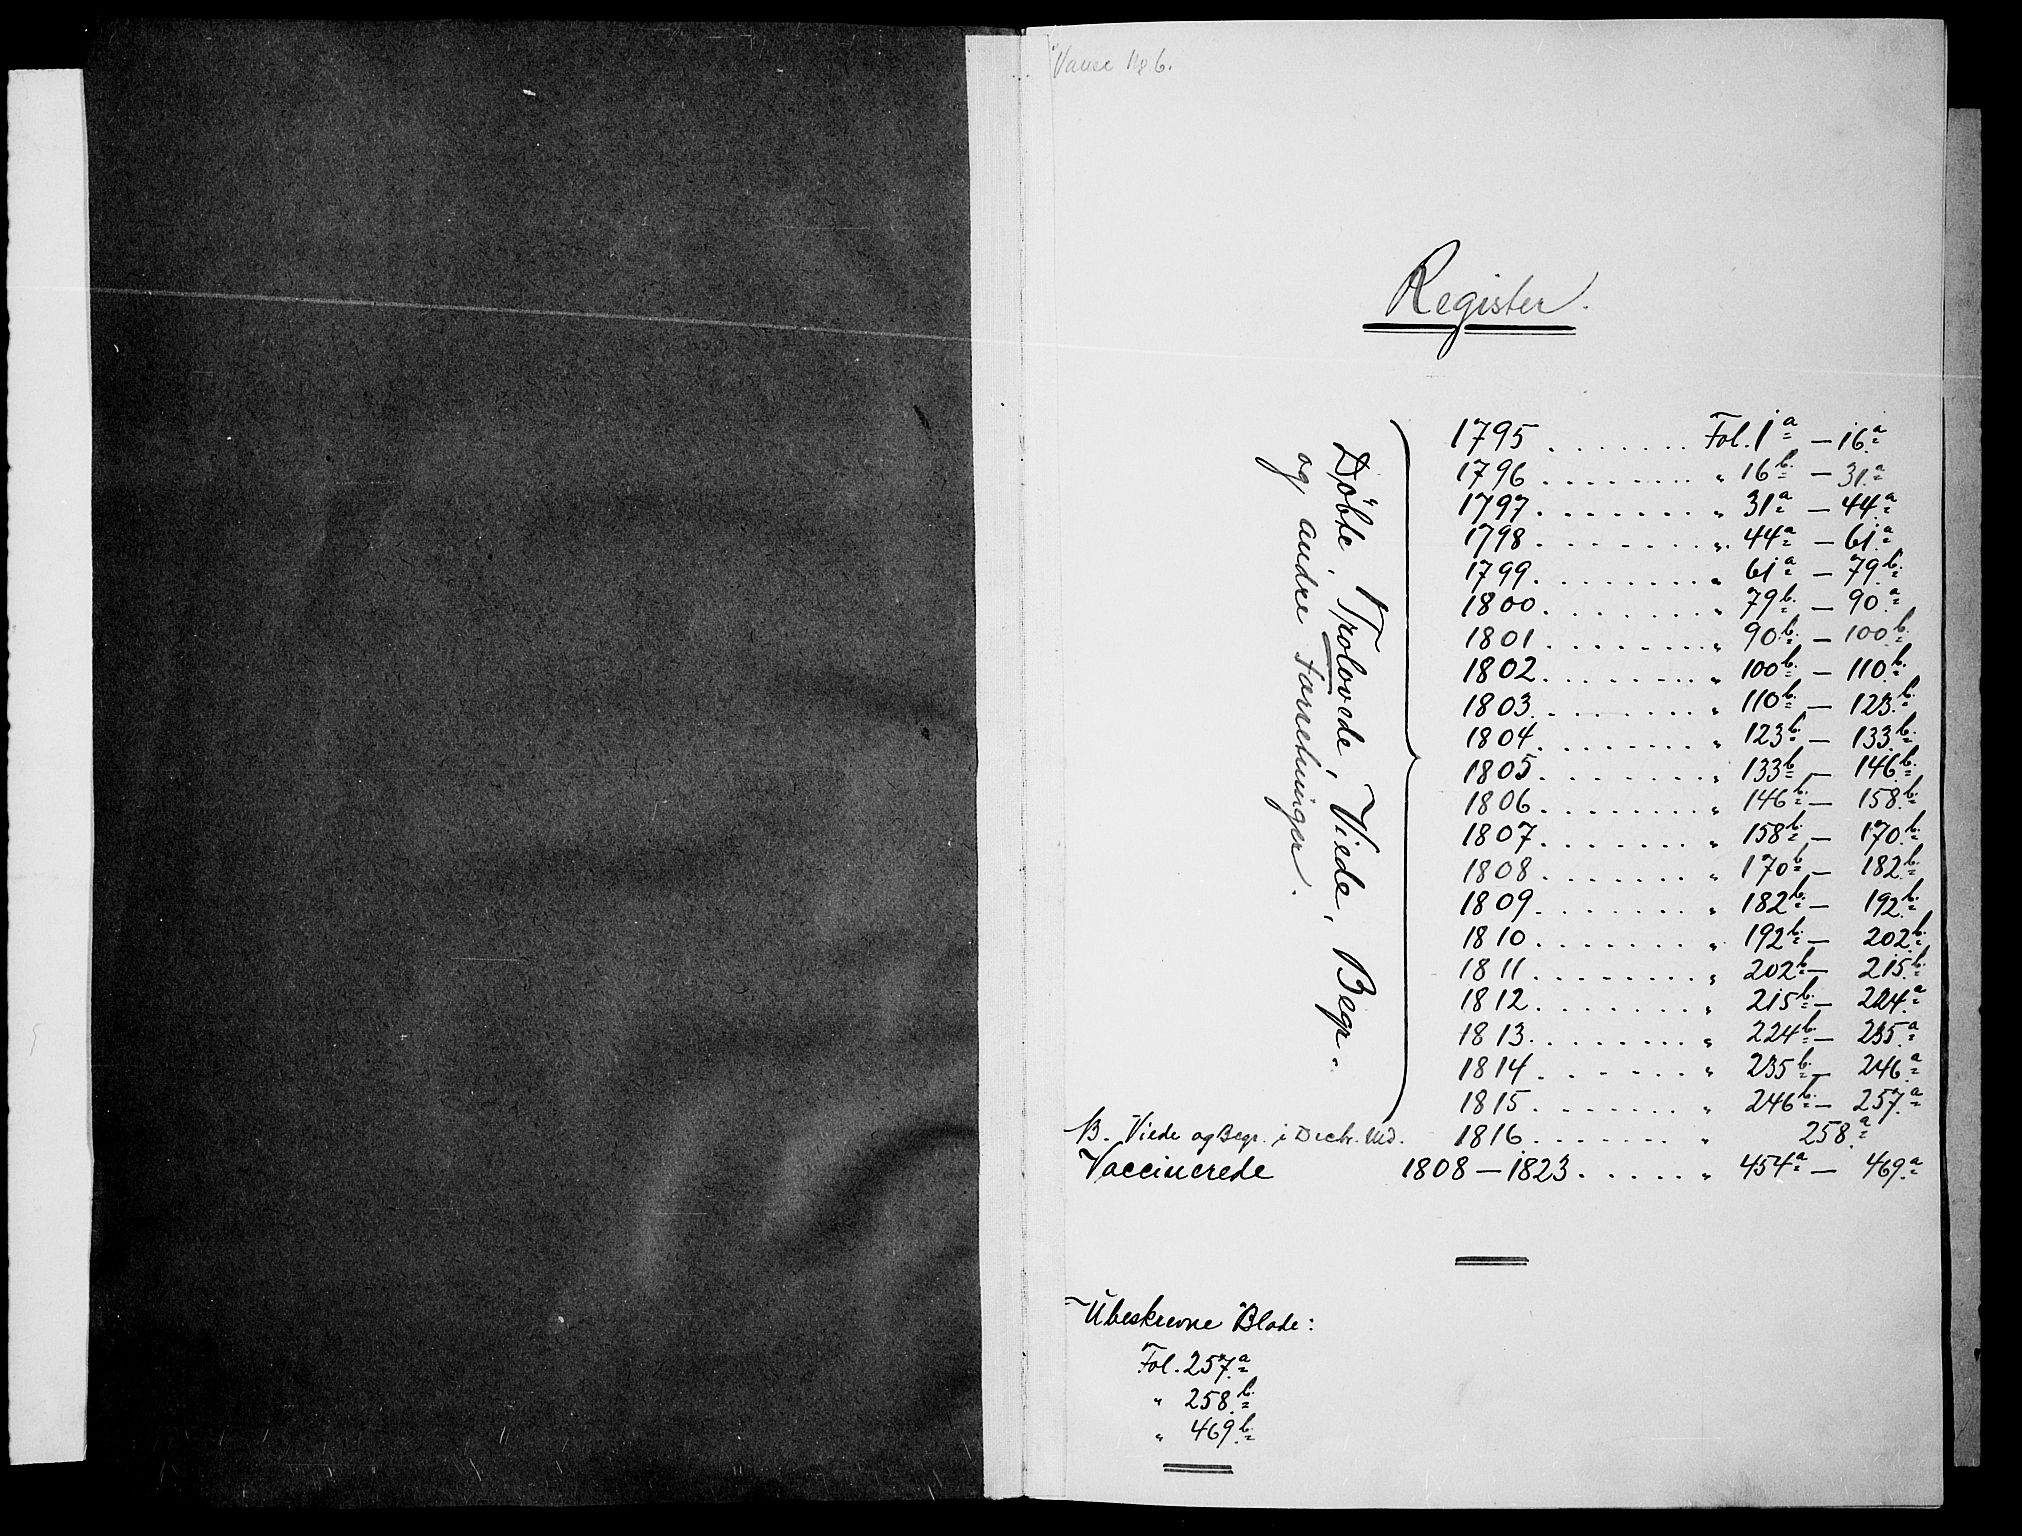 Vanse No 6.
Register.
Døbte, Trolovede, Viede, Begr.
og andre Forretninger.
1795 . . . . . . . Fol. 1a – 16a
1796 . . . . . . . " 16b – 31a
1797 . . . . . . . " 31a – 44a
1798 . . . . . . . " 44a – 61a
1799 . . . . . . . " 61a – 79b
1800 . . . . . . . " 79b – 90a
1801 . . . . . . . " 90b – 100b
1802 . . . . . . . " 100b – 110b
1803 . . . . . . . " 110b – 123b
1804 . . . . . . . " 123b – 133b
1805 . . . . . . . " 133b – 146b
1806 . . . . . . . " 146b – 158b
1807 . . . . . . . " 158b – 170b
1808 . . . . . . . " 170b – 182b
1809 . . . . . . . " 182b – 192b
1810 . . . . . . . " 192b – 202b
1811 . . . . . . . " 202b – 215b
1812 . . . . . . . " 215b – 224a
1813 . . . . . . . " 224b – 235a
1814 . . . . . . . " 235b – 246a
1815 . . . . . . . " 246b – 257a
B. Viede og Begr. i Decbr. Md. 1816 . . . . . . . " 258a
Vaccinerede 1808 – 1823 . . . . . " 454a – 469a
Ubeskrevne Blade:
Fol. 257a
" 258b
" 469b